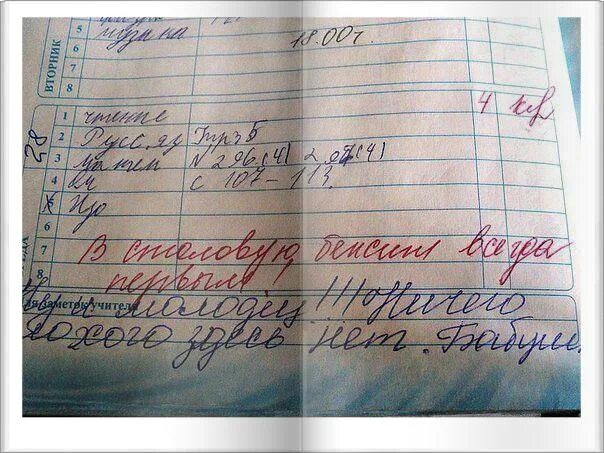 ВТОРНИК
5 музыка 18.00г.
6
7
8
28
1 чтение 4
2 Русс.яз
3 N 296(4) 297(4)
4 с 107-113.
5 Изо
6
7 В столовую бежит всегда
8 первым
Ну и молодец!!! Ничего
для заметок учителя
плохого здесь нет. Бабушка